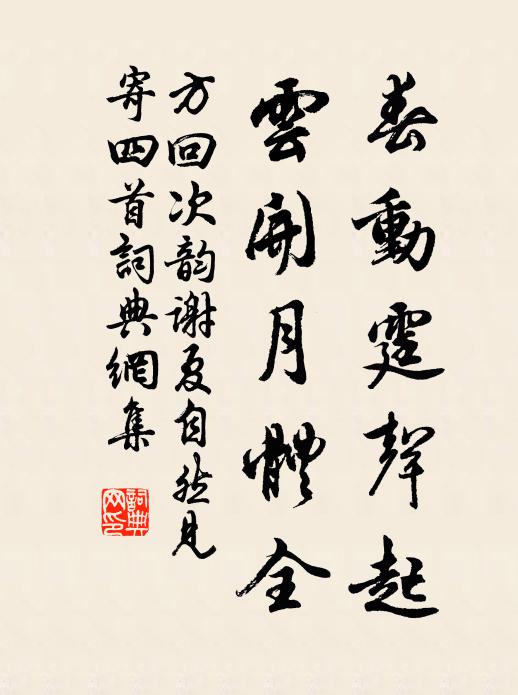 春動霆聲起
雲開月體全
方回次韵謝夏自然見
寄四首詞典網集
詞典网印